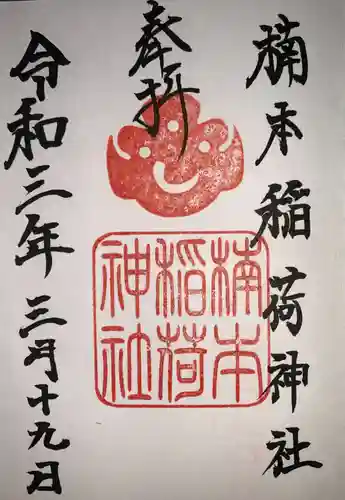 楠本稲荷神社
奉拝
令和三年三月十九日
楠本
稲荷
神社